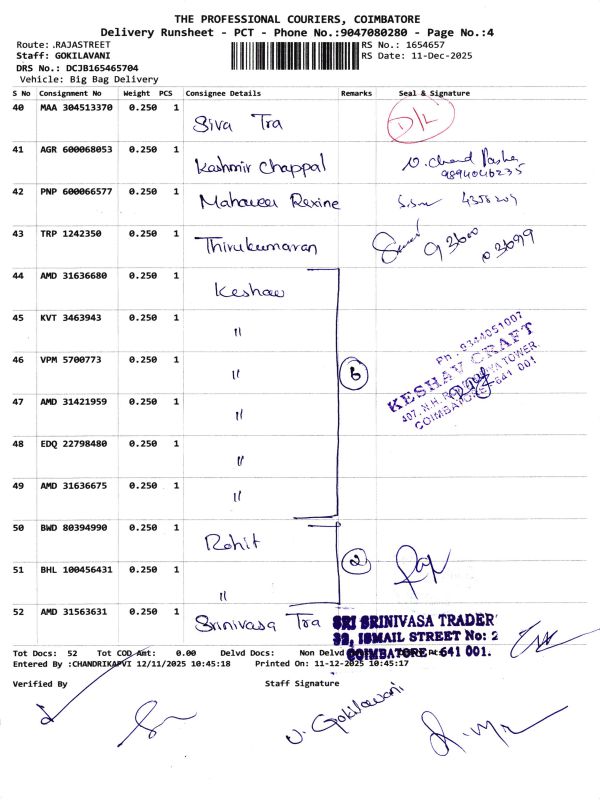 THE PROFESSIONAL COURIERS, COIMBATORE
Delivery Runsheet - PCT - Phone No.:9047080280 - Page No.:4
Route: .RAJASTREET RS No.: 1654657
Staff: GOKILAVANI RS Date: 11-Dec-2025
DRS No.: DCJB165465704
Vehicle: Big Bag Delivery
S No Consignment No Weight PCS Consignee Details Remarks Seal & Signature
40 MAA 304513370 0.250 1 Siva Tra D/L
41 AGR 600068053 0.250 1 Kashmir Chappal
42 PNP 600066577 0.250 1 Mahaveer Rexine
43 TRP 1242350 0.250 1 Thirukumaran
44 AMD 31636680 0.250 1 Keshav
45 KVT 3463943 0.250 1 "
46 VPM 5700773 0.250 1 " 6
47 AMD 31421959 0.250 1 "
48 EDQ 22798480 0.250 1 "
49 AMD 31636675 0.250 1 "
Ph : 9344051007
KESHAV CRAFT
TOWER,
COIMBATORE-641 001
50 BWD 80394990 0.250 1 Rohit
51 BHL 100456431 0.250 1 " 2
52 AMD 31563631 0.250 1 Srinivasa Tra
SRI SRINIVASA TRADER
32, ISMAIL STREET No: 2
COIMBATORE - 641 001.
Tot Docs: 52 Tot COD Amt: 0.00 Delvd Docs: Non Delvd
Entered By :CHANDRIKAPVI 12/11/2025 10:45:18 Printed On: 11-12-2025 10:45:17
Verified By Staff Signature
V. Gokilavani